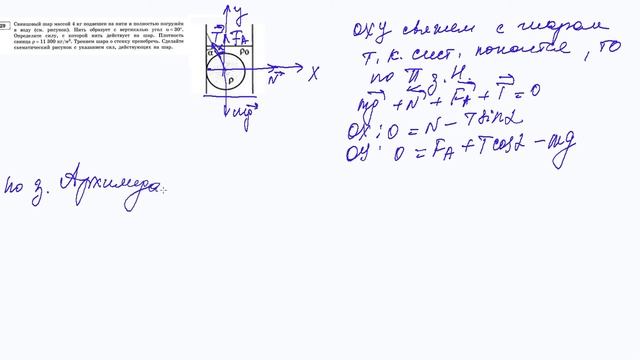 29
Свинцовый шар массой 4 кг подвешен на нити и полностью погружён
в воду (см. рисунок). Нить образует с вертикалью угол α = 30°.
Определите силу, с которой нить действует на шар. Плотность
свинца ρ = 11 300 кг/м³. Трением шара о стенку пренебречь. Сделайте
схематический рисунок с указанием сил, действующих на шар.
y
T FA
α ρ0
ρ
N X
mg
OXY свяжем с шаром
т. к. сист. покоится, то
по II з. Н.
mg + N + FA + T = 0
OX: 0 = N - T sin α
OY: 0 = FA + T cos α - mg
по з. Архимеда